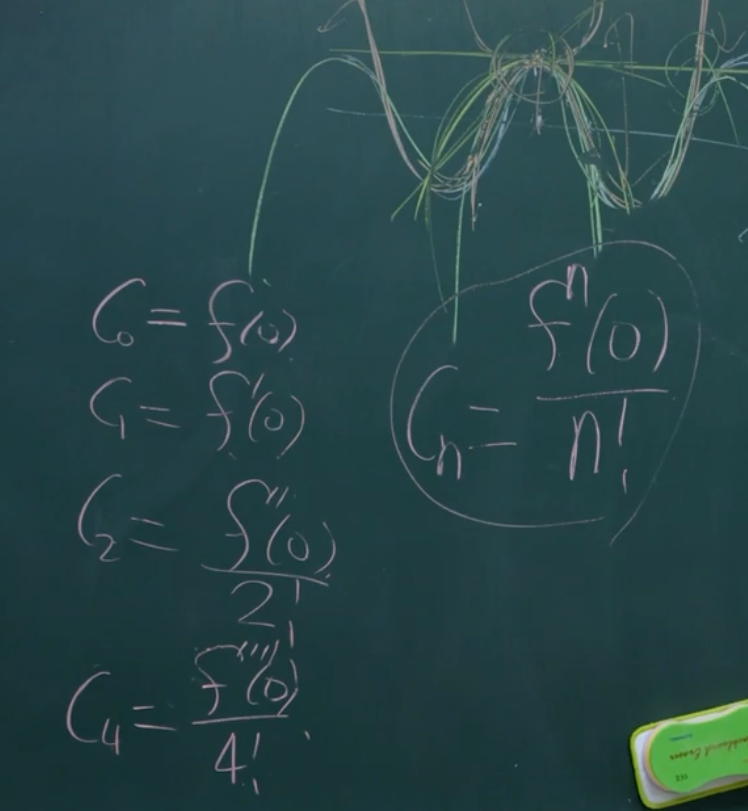 C₀ = f(0)
C₁ = f'(0)
C₂ = f''(0)/2!
C₄ = f''''(0)/4!
Cₙ = fⁿ(0)/n!